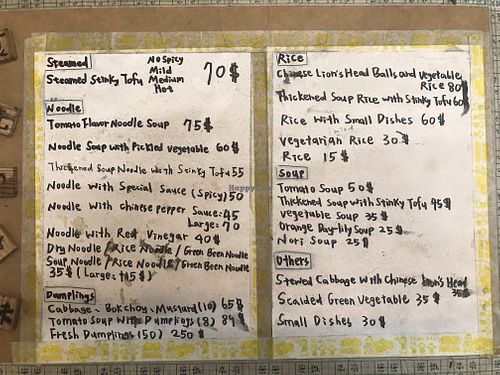 Steamed
No Spicy
Mild
Steamed Stinky Tofu Medium 70$
Hot
Noodle
Tomato Flavor Noodle Soup 75$
Noodle Soup with Pickled vegetable 60$
Thickened Soup Noodle with Stinky Tofu 55
Noodle with Special Sauce (Spicy) 50
Noodle with Chinese pepper Sauce: 45
Large: 70
Noodle with Red Vinegar 40$
Dry Noodle / Rice Noodle / Green Been Noodle
Soup Noodle / Rice Noodle / Green Been Noodle
35$ (Large: +15$)
Dumplings
Cabbage、Bokchoy、Mustard (10) 65$
Tomato Soup with Dumplings (8) 84$
Fresh Dumplings (50) 250$
Rice
Chinese Lion's Head Balls and vegetable
Rice 80
Thickened Soup Rice with Stinky Tofu 60
Rice with Small Dishes 60$
Vegetarian Rice 30$
Rice 15$
Soup
Tomato Soup 50$
Thickened Soup with Stinky Tofu 45$
Vegetable Soup 35$
Orange Day-lily Soup 25$
Nori Soup 25$
Others
Stewed Cabbage with Chinese Lion's Head
35$
Scalded Green Vegetable 35$
Small Dishes 30$